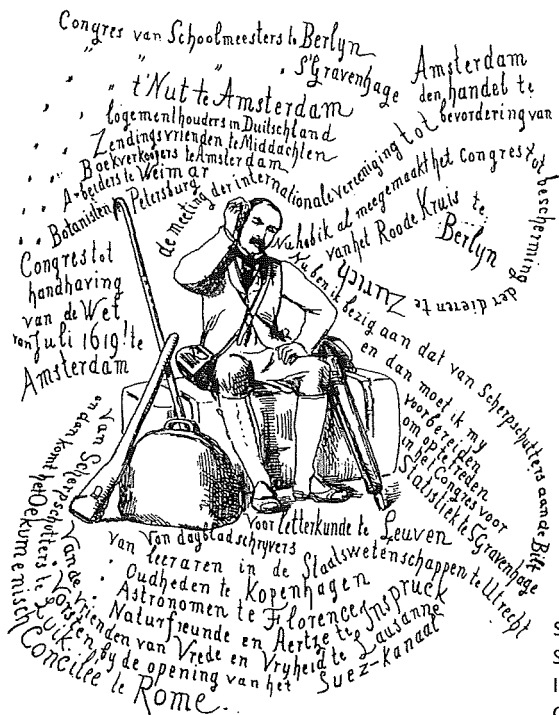 Congres van Schoolmeesters te Berlyn
" " " " S'Gravenhage
" t'Nut te Amsterdam
" logementhouders in Duitschland
" Zendingsvrienden te Middachten
" Boekverkoopers te Amsterdam
" Arbeiders te Weimar
" Botanisten te Petersburg
Congres tot
handhaving
van de Wet
van Juli 1619! te
Amsterdam
Amsterdam
den handel te
bevordering van
de meeting der internationale vereeniging tot
Nu heb ik al meegemaakt het Congres tot bescherming der dieren te Zurich
van het Roode Kruis te
Berlyn
Nu ben ik bezig aan dat van Scherpschutters aan de Bilt
en dan moet ik my
voorbereiden
om op te treden
in het Congres voor
Statistiek te S'Gravenhage
voor letterkunde te Leuven
van dagbladschryvers
van leeraren in de Staatswetenschappen te Utrecht
" Oudheden te Kopenhagen
" Astronomen te Florence
" Naturfreunde en Aertze te Inspruck
van de Vrienden van Vrede en Vryheid te Lausanne
" Vorsten by de opening van het Suez-kanaal
van Scherpschutters te Luik
en dan komt het Oekumenisch Concilee te Rome...